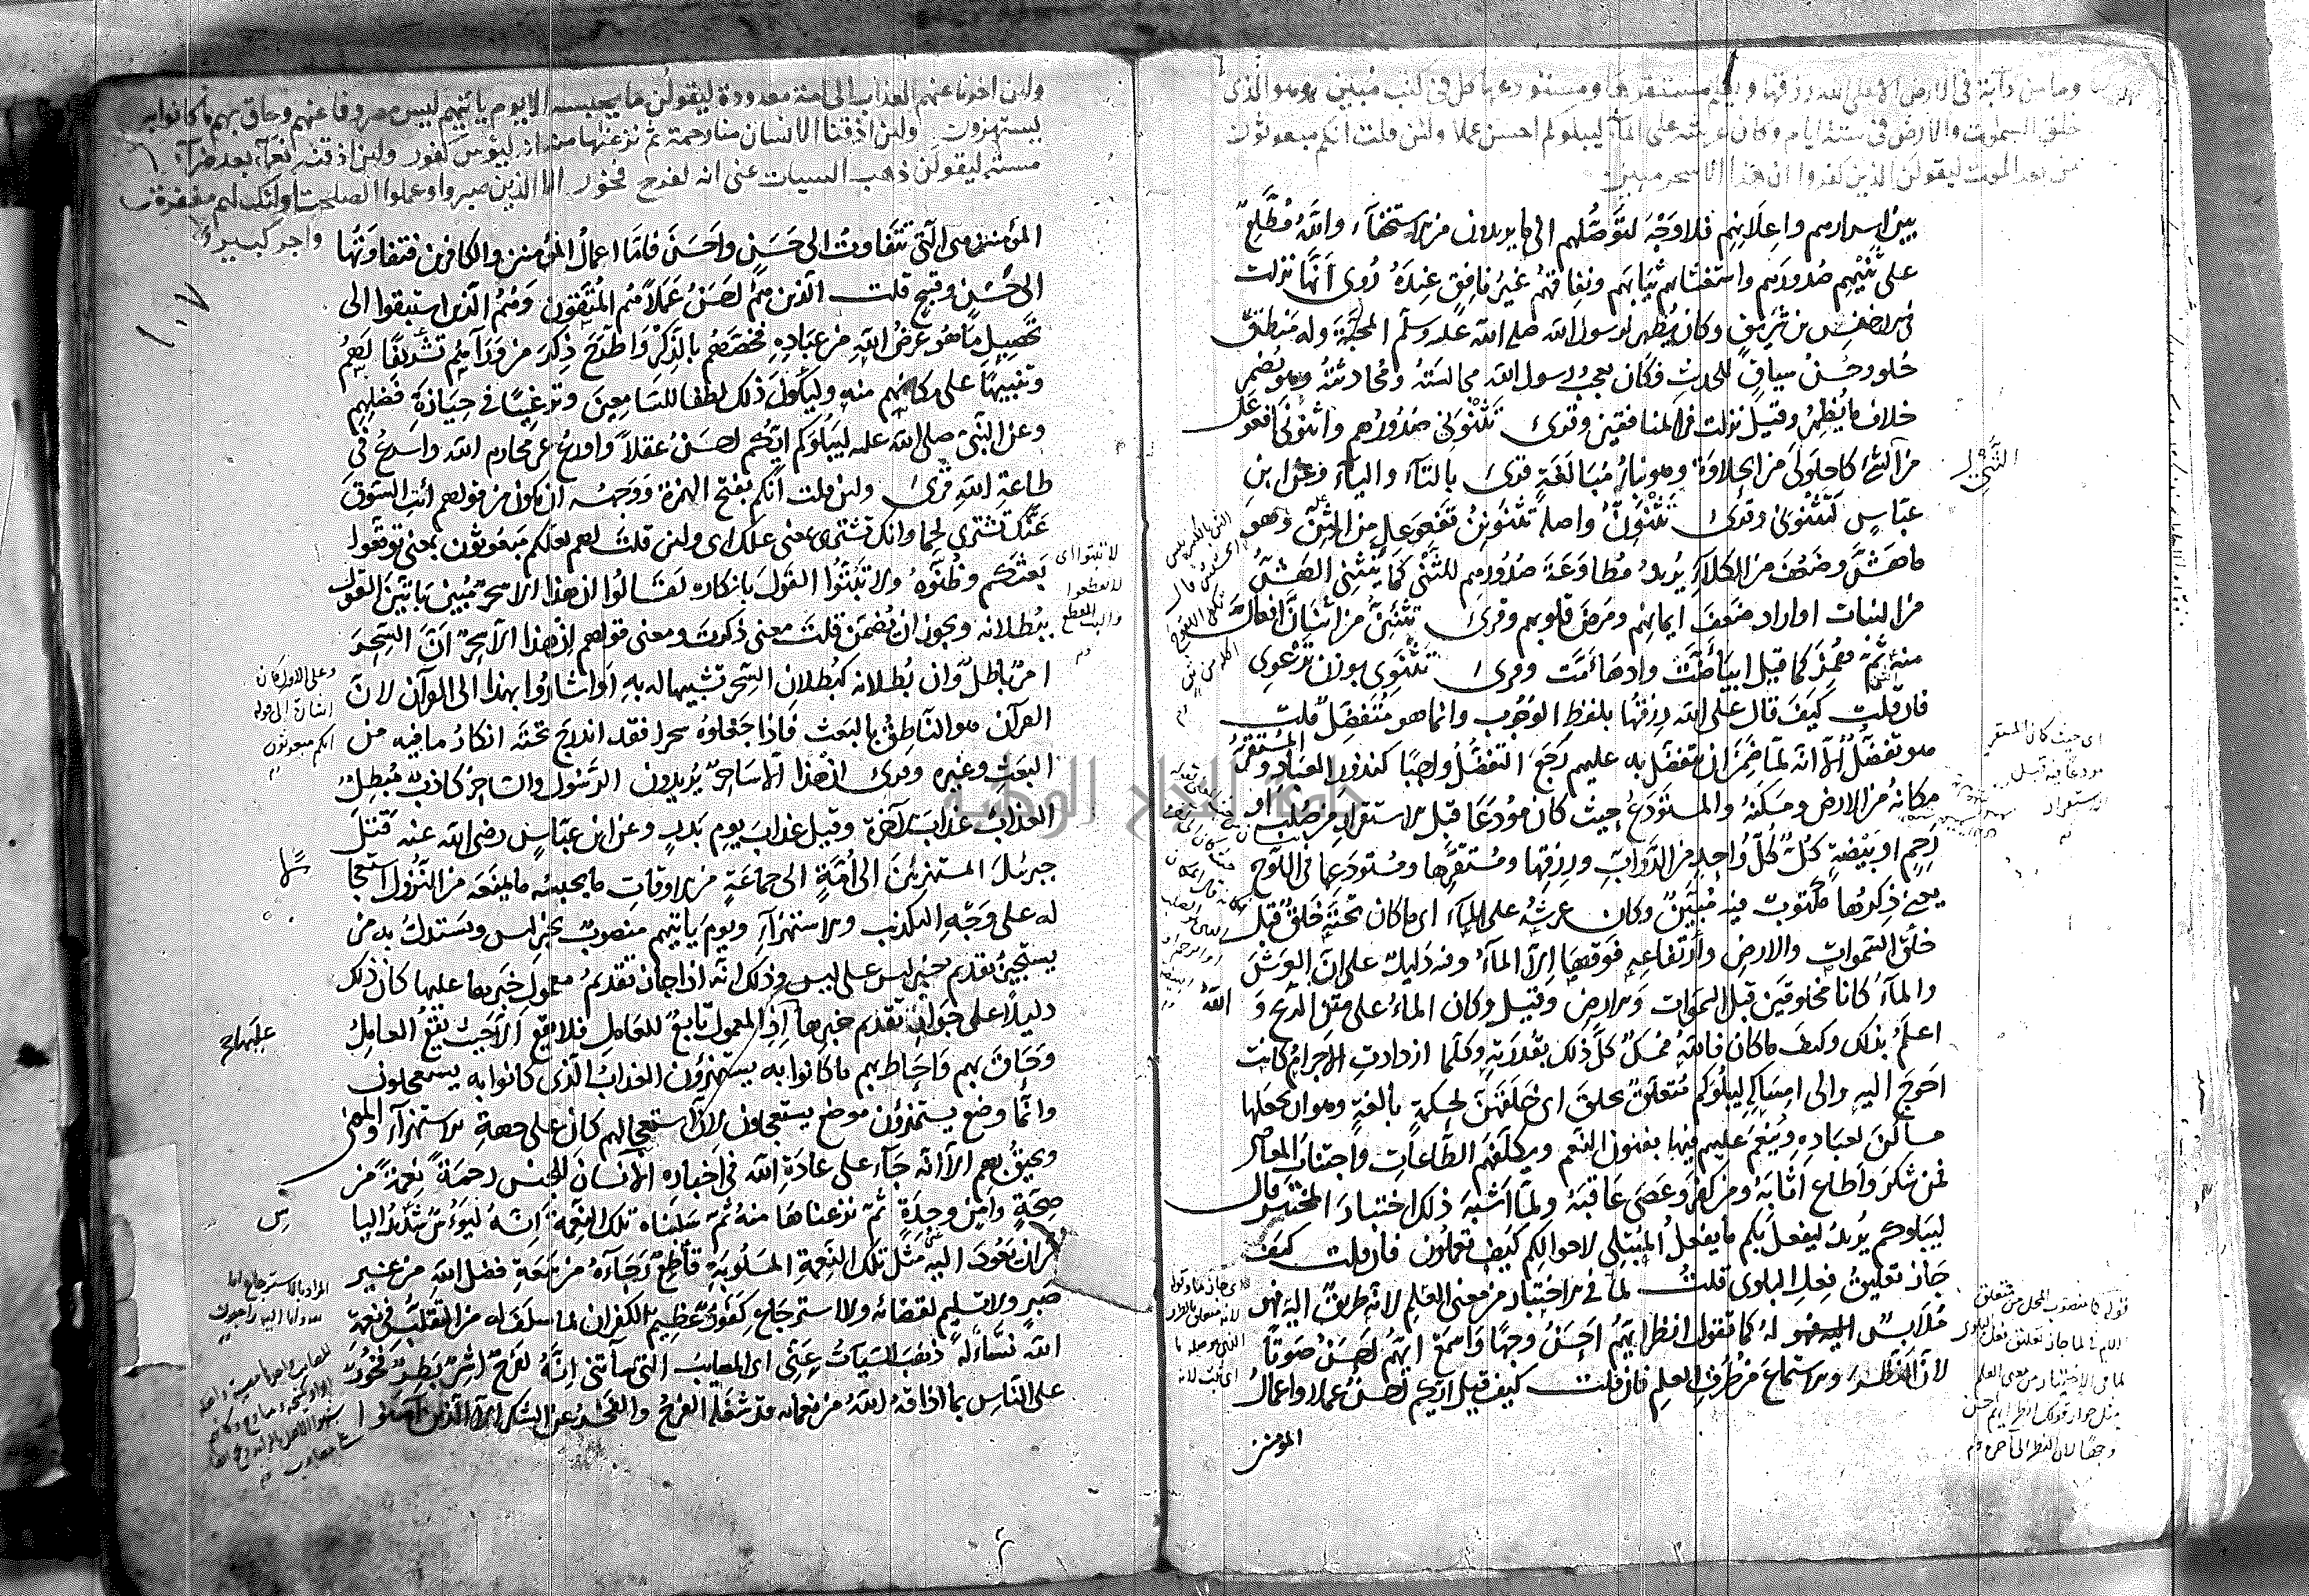 وما من دآبة فى الارض الا على الله رزقها ويعلم مستقرها ومستودعها كل فى كتب مبين وهو الذى
خلق السموات والارض فى ستة ايام وكان عرشه على المآء ليبلوكم احسن عملا ولئن قلت انكم مبعوثون
من بعد الموت ليقولن الذين كفروا ان هذا الا سحر مبين
بين اسرارهم واعلانهم فلا وجه لتوصلهم الى ما يريدون من الاستخفآء والله مطلع
على ثنيهم صدورهم واستغشائهم ثيابهم ونفاقهم غير نافق عنده روى انها نزلت
فى الاخنس بن شريق وكان يظهر لرسول الله صلى الله عليه وسلم المحبة وله منطق
حلو وحسن سياق للحديث فكان يعجب رسول الله مجالسته ومحادثته وهو يضمر
خلاف ما يظهر وقيل نزلت فى المنافقين وقرئ تثنونى صدورهم واثنونى افعوعل
من الثنى كاحلولى من الحلاوة وهو بنآء مبالغة قرئ بالتآء واليآء وعن ابن
عباس لتثنونى وقرئ تثنون واصله تثنونن تفعوعل من الثن وهو
ما هش وضعف من الكلاء يريد مطاوعة صدورهم للثنى كما ينثنى الهش
من النبات او اراد ضعف ايمانهم ومرض قلوبهم وقرئ تثنئن من اثنان افعال
منه ثم همز كما قيل ابيأضت وادهأمت وقرئ تثنوى بوزن ترعوى
فان قلت كيف قال على الله رزقها بلفظ الوجوب وانما هو متفضل قلت
هو تفضل الا انه لما ضمن ان يتفضل به عليهم رجع التفضل واجبا كنذور العباد والمستقر
مكانه من الارض ومسكنه والمستودع حيث كان مودعا قبل الاستقرار من صلب او
رحم او بيضة كل كل واحد من الدواب ورزقها ومستقرها ومستودعها فى اللوح
يعنى ذكرها مكتوب فيه مبين وكان عرشه على المآء اى ما كان تحته خلق قبل
خلق السموات والارض وارتفاعه فوقها الا المآء وفيه دليل على ان العرش
والمآء كانا مخلوقين قبل السموات والارض وقيل وكان المآء على متن الريح والله
اعلم بذلك وكيف ما كان فالله ممسك كل ذلك بقدرته وكلما ازدادت الاجرام كانت
احوج اليه والى امساكه ليبلوكم متعلق بخلق اى خلقهن لحكمة بالغة وهو ان يجعلها
مساكن لعباده وينعم عليهم فيها بفنون النعم ويكلفهم الطاعات واجتناب المعاصى
فمن شكر واطاع اثابه ومن كفر وعصى عاقبه ولما اشبه ذلك اختبار المختبر قال
ليبلوكم يريد ليفعل بكم ما يفعل المبتلى لاحوالكم كيف تعملون فان قلت كيف
جاز تعليق فعل البلوى قلت لما فى الاختبار من معنى العلم لانه طريق اليه فهو
ملابس له كما تقول انظر ايهم احسن وجها واسمع ايهم احسن صوتا
لان النظر والاستماع من طرف العلم فان قلت كيف قيل ايكم احسن عملا واعمال
المؤمنين
ولئن اخرنا عنهم العذاب الى امة معدودة ليقولن ما يحبسه الا يوم يأتيهم ليس مصروفا عنهم وحاق بهم ما كانوا به
يستهزون ولئن اذقنا الانسان منا رحمة ثم نزعنها منه انه ليؤس كفور ولئن اذقنه نعمآء بعد ضرآء
مسته ليقولن ذهب السيات عنى انه لفرح فخور الا الذين صبروا وعملوا الصلحت اولئك لهم مغفرة
واجر كبير
١٠٧
المؤمنين هى التى تتفاوت الى حسن واحسن فاما اعمال المؤمنين والكافرين فتفاوتها
الى حسن وقبيح قلت الذين هم احسن عملا هم المتقون وهم الذين استبقوا الى
تحصيل ما هو غرض الله من عباده فخصهم بالذكر واطرح ذكر من ورآءهم تشريفا لهم
وتنبيها على مكانهم منه وليكون ذلك لطفا للسامعين وترغيبا فى حيازة فضلهم
وعن النبى صلى الله عليه ليبلوكم ايكم احسن عقلا واورع عن محارم الله واسرع فى
طاعة الله قرئ ولئن قلت انكم بفتح الهمزة ووجهه ان يكون من قولهم ائت السوق
عنك تشترى لحما وانك تشترى بمعنى علك اى ولئن قلت لهم لعلكم مبعوثون بمعنى توقعوا
بعثكم وظنوه ولا تبتوا القول بانكاره لقالوا ان هذا الا سحر مبين باتين القول
ببطلانه ويجوز ان تضمن قلت معنى ذكرت ومعنى قولهم ان هذا الا سحر ان السحر
امر باطل وان بطلانه كبطلان السحر تشبيها له به او اشاروا بهذا الى القرآن لان
القرآن هو الناطق بالبعث فاذا جعلوه سحرا فقد اندرج تحته انكار ما فيه من
البعث وغيره وقرئ ان هذا الا ساحر يريدون الرسول والساحر كاذب مبطل
العذاب عذاب الآخرة وقيل عذاب يوم بدر وعن ابن عباس رضى الله عنه قتل
جبرئيل المستهزئين الى امة الى جماعة من الاوقات ما يحبسه ما يمنعه من النزول استعجا
له على وجه التكذيب والاستهزآء ويوم ياتيهم منصوب بخبر ليس ويستدل به من
يستجيز تقديم خبر ليس على ليس وذلك انه اذا جاز تقديم معمول خبرها عليها كان ذلك
دليلا على جواز تقديم خبرها اذ المعمول تابع للعامل فلا يقع الا حيث يقع العامل
وحاق بهم واحاط بهم ما كانوا به يستهزؤن العذاب الذى كانوا به يستعجلون
وانما وضع يستهزؤن موضع يستعجلون لان استعجالهم كان على جهة الاستهزآء والمعنى
ويحيق بهم الا انه جآء على عادة الله فى اخباره الانسان للجنس رحمة نعمة من
صحة وامن وجدة ثم نزعناها منه ثم سلبناه تلك النعمة انه ليؤس شديد اليا
من ان تعود اليه مثل تلك النعمة المسلوبة قاطع رجآءه من سعة فضل الله من غير
صبر ولا تسليم لقضائه ولا استرجاع كفور عظيم الكفران لما سلف له من التقلب فى نعمة
الله نسآء له ذهب السيآت عنى اى المصايب التى سآتنى انه لفرح اشر بطر فخور
على الناس بما اذاقه الله من نعمائه قد شغله الفرح والفخر عن الشكر الا الذين آمنوا
وعلى الاول كان
اشارة الى قوله
انكم مبعوثون
اى حيث كان المستقر
مودعا فيه قبل
الاستقرار
جامعة النجاح الوطنية